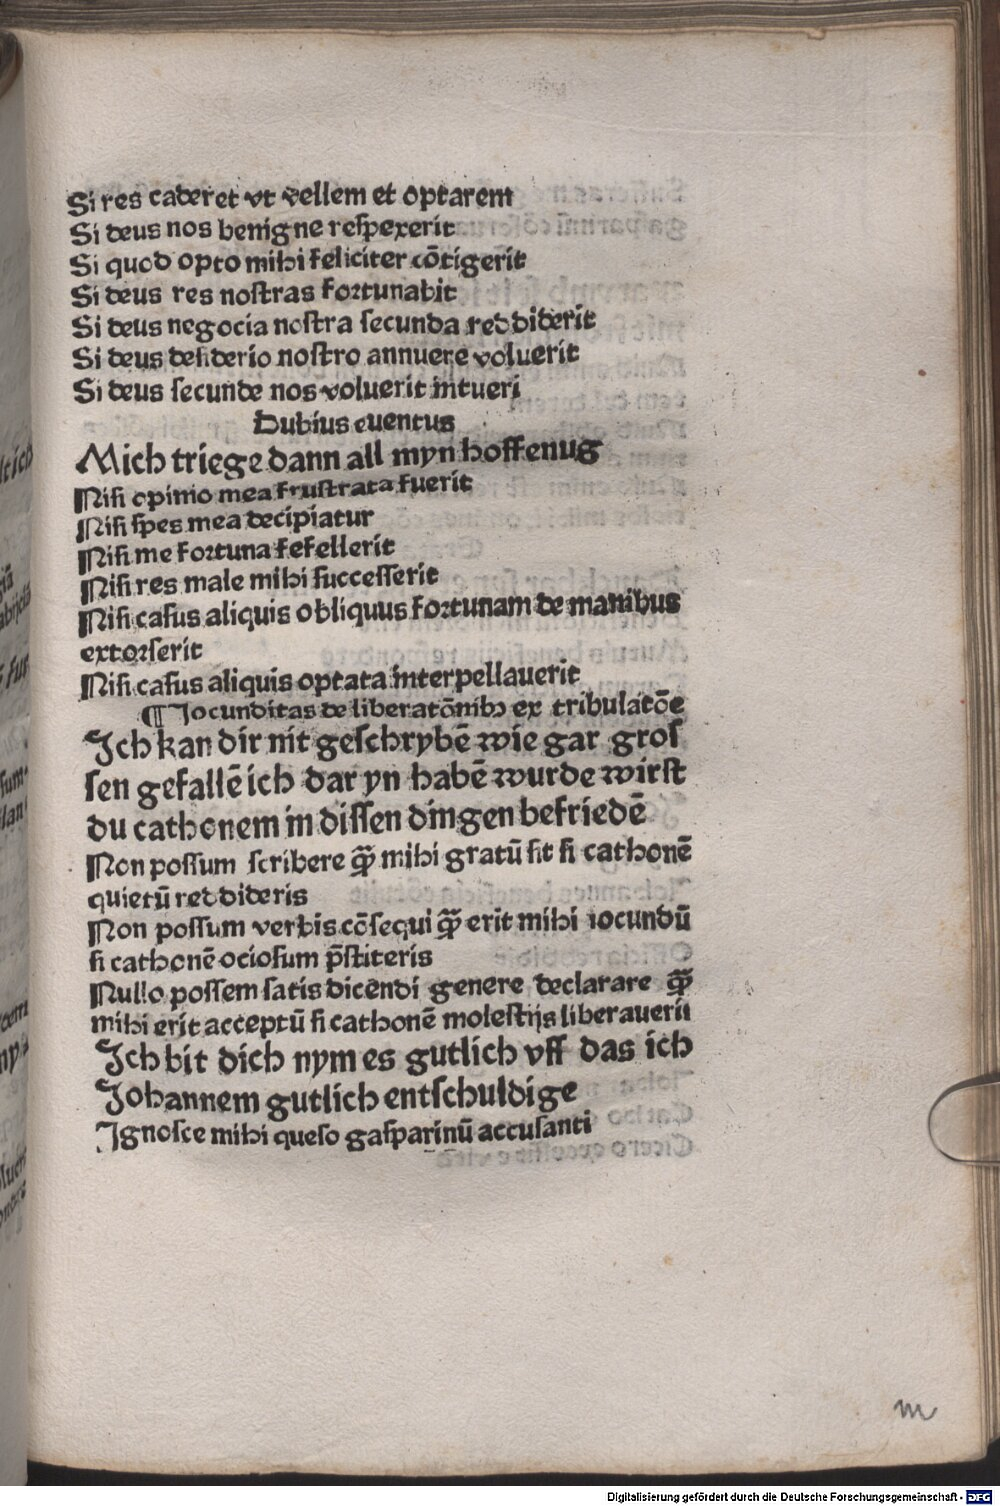 Si res caderet vt vellem et optarem
Si deus nos benigne reſpexerit
Si quod opto mihi feliciter cōtigerit
Si deus res noſtras fortunabit
Si deus negocia noſtra ſecunda reddiderit
Si deus deſiderio noſtro annuere voluerit
Si deus ſecunde nos voluerit intueri
Dubius euentus
Mich triege dann all myn hoffenug
Niſi opinio mea fruſtrata fuerit
Niſi ſpes mea decipiatur
Niſi me fortuna fefellerit
Niſi res male mihi ſucceſſerit
Niſi caſus aliquis obliquus fortunam de manibus
extorſerit
Niſi caſus aliquis optata interpellauerit
¶ Jocunditas de liberatōnibꝫ ex tribulatōe
Ich kan dir nit geſchrybē wie gar groſ
ſen gefallē ich dar yn habē wurde wirſt
du cathonem in diſſen dingen befriedē
Non poſſum ſcribere q̄ꝫ mihi gratū ſit ſi cathonē
quietū reddideris
Non poſſum verbis cōſequi q̄ꝫ erit mihi iocundū
ſi cathonē ocioſum p̄ſtiteris
Nullo poſſem ſatis dicendi genere declarare q̄ꝫ
mihi erit acceptū ſi cathonē moleſtijs liberaueris
Ich bit dich nym es gutlich vff das ich
Johannem gutlich entſchuldige
Ignoſce mihi queſo gaſparinū accuſanti
m
Digitalisierung gefördert durch die Deutsche Forschungsgemeinschaft - DFG